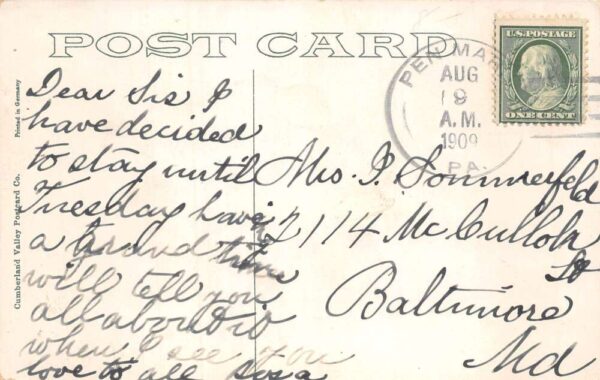 POST CARD
U.S. POSTAGE
ONE CENT
PEN MAR
AUG
9
A.M.
1909
PA.
Printed in Germany
Cumberland Valley Postcard Co.
Dear Sis I
have decided
to stay until
Tuesday having
a grand time
will tell you
all about it
when I see you
love to all Rosa
Mrs. I. Sommerfeld
2114 McCulloh
St
Baltimore
Md